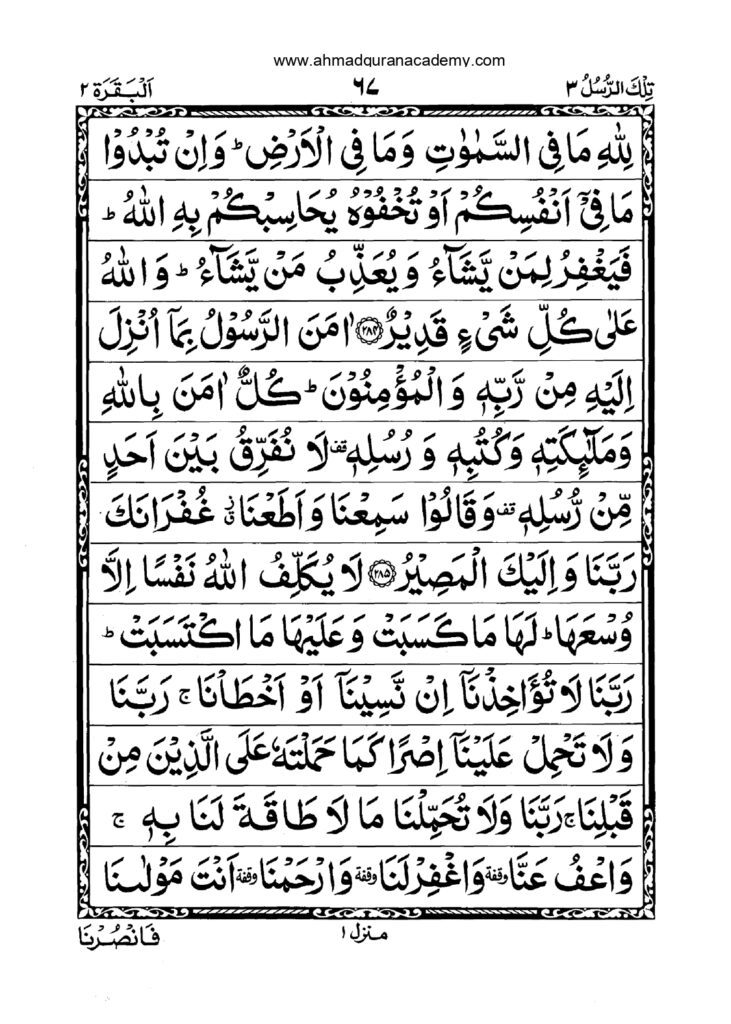 www.ahmadquranacademy.com
تِلْكَ الرُّسُلُ ٣
٦٧
اَلْبَقَرَة ٢
لِلّٰهِ مَا فِى السَّمٰوٰتِ وَمَا فِى الْاَرْضِ ؕ وَاِنْ تُبْدُوْا
مَا فِىْۤ اَنْفُسِكُمْ اَوْ تُخْفُوْهُ يُحَاسِبْكُمْ بِهِ اللّٰهُ ؕ
فَيَغْفِرُ لِمَنْ يَّشَآءُ وَيُعَذِّبُ مَنْ يَّشَآءُ ؕ وَاللّٰهُ
عَلٰى كُلِّ شَىْءٍ قَدِيْرٌ ﴿۲۸۴﴾ اٰمَنَ الرَّسُوْلُ بِمَاۤ اُنْزِلَ
اِلَيْهِ مِنْ رَّبِّهٖ وَالْمُؤْمِنُوْنَ ؕ كُلٌّ اٰمَنَ بِاللّٰهِ
وَمَلٰٓئِكَتِهٖ وَكُتُبِهٖ وَرُسُلِهٖ قف لَا نُفَرِّقُ بَيْنَ اَحَدٍ
مِّنْ رُّسُلِهٖ قف وَقَالُوْا سَمِعْنَا وَاَطَعْنَا ق ز غُفْرَانَكَ
رَبَّنَا وَاِلَيْكَ الْمَصِيْرُ ﴿۲۸۵﴾ لَا يُكَلِّفُ اللّٰهُ نَفْسًا اِلَّا
وُسْعَهَا ؕ لَهَا مَا كَسَبَتْ وَعَلَيْهَا مَا اكْتَسَبَتْ ؕ
رَبَّنَا لَا تُؤَاخِذْنَاۤ اِنْ نَّسِيْنَاۤ اَوْ اَخْطَاْنَا ۚ رَبَّنَا
وَلَا تَحْمِلْ عَلَيْنَاۤ اِصْرًا كَمَا حَمَلْتَهٗ عَلَى الَّذِيْنَ مِنْ
قَبْلِنَا ۚ رَبَّنَا وَلَا تُحَمِّلْنَا مَا لَا طَاقَةَ لَنَا بِهٖ ۚ
وَاعْفُ عَنَّا وقفة وَاغْفِرْ لَنَا وقفة وَارْحَمْنَا وقفة اَنْتَ مَوْلٰىنَا
منزل ١
فَانْصُرْنَا